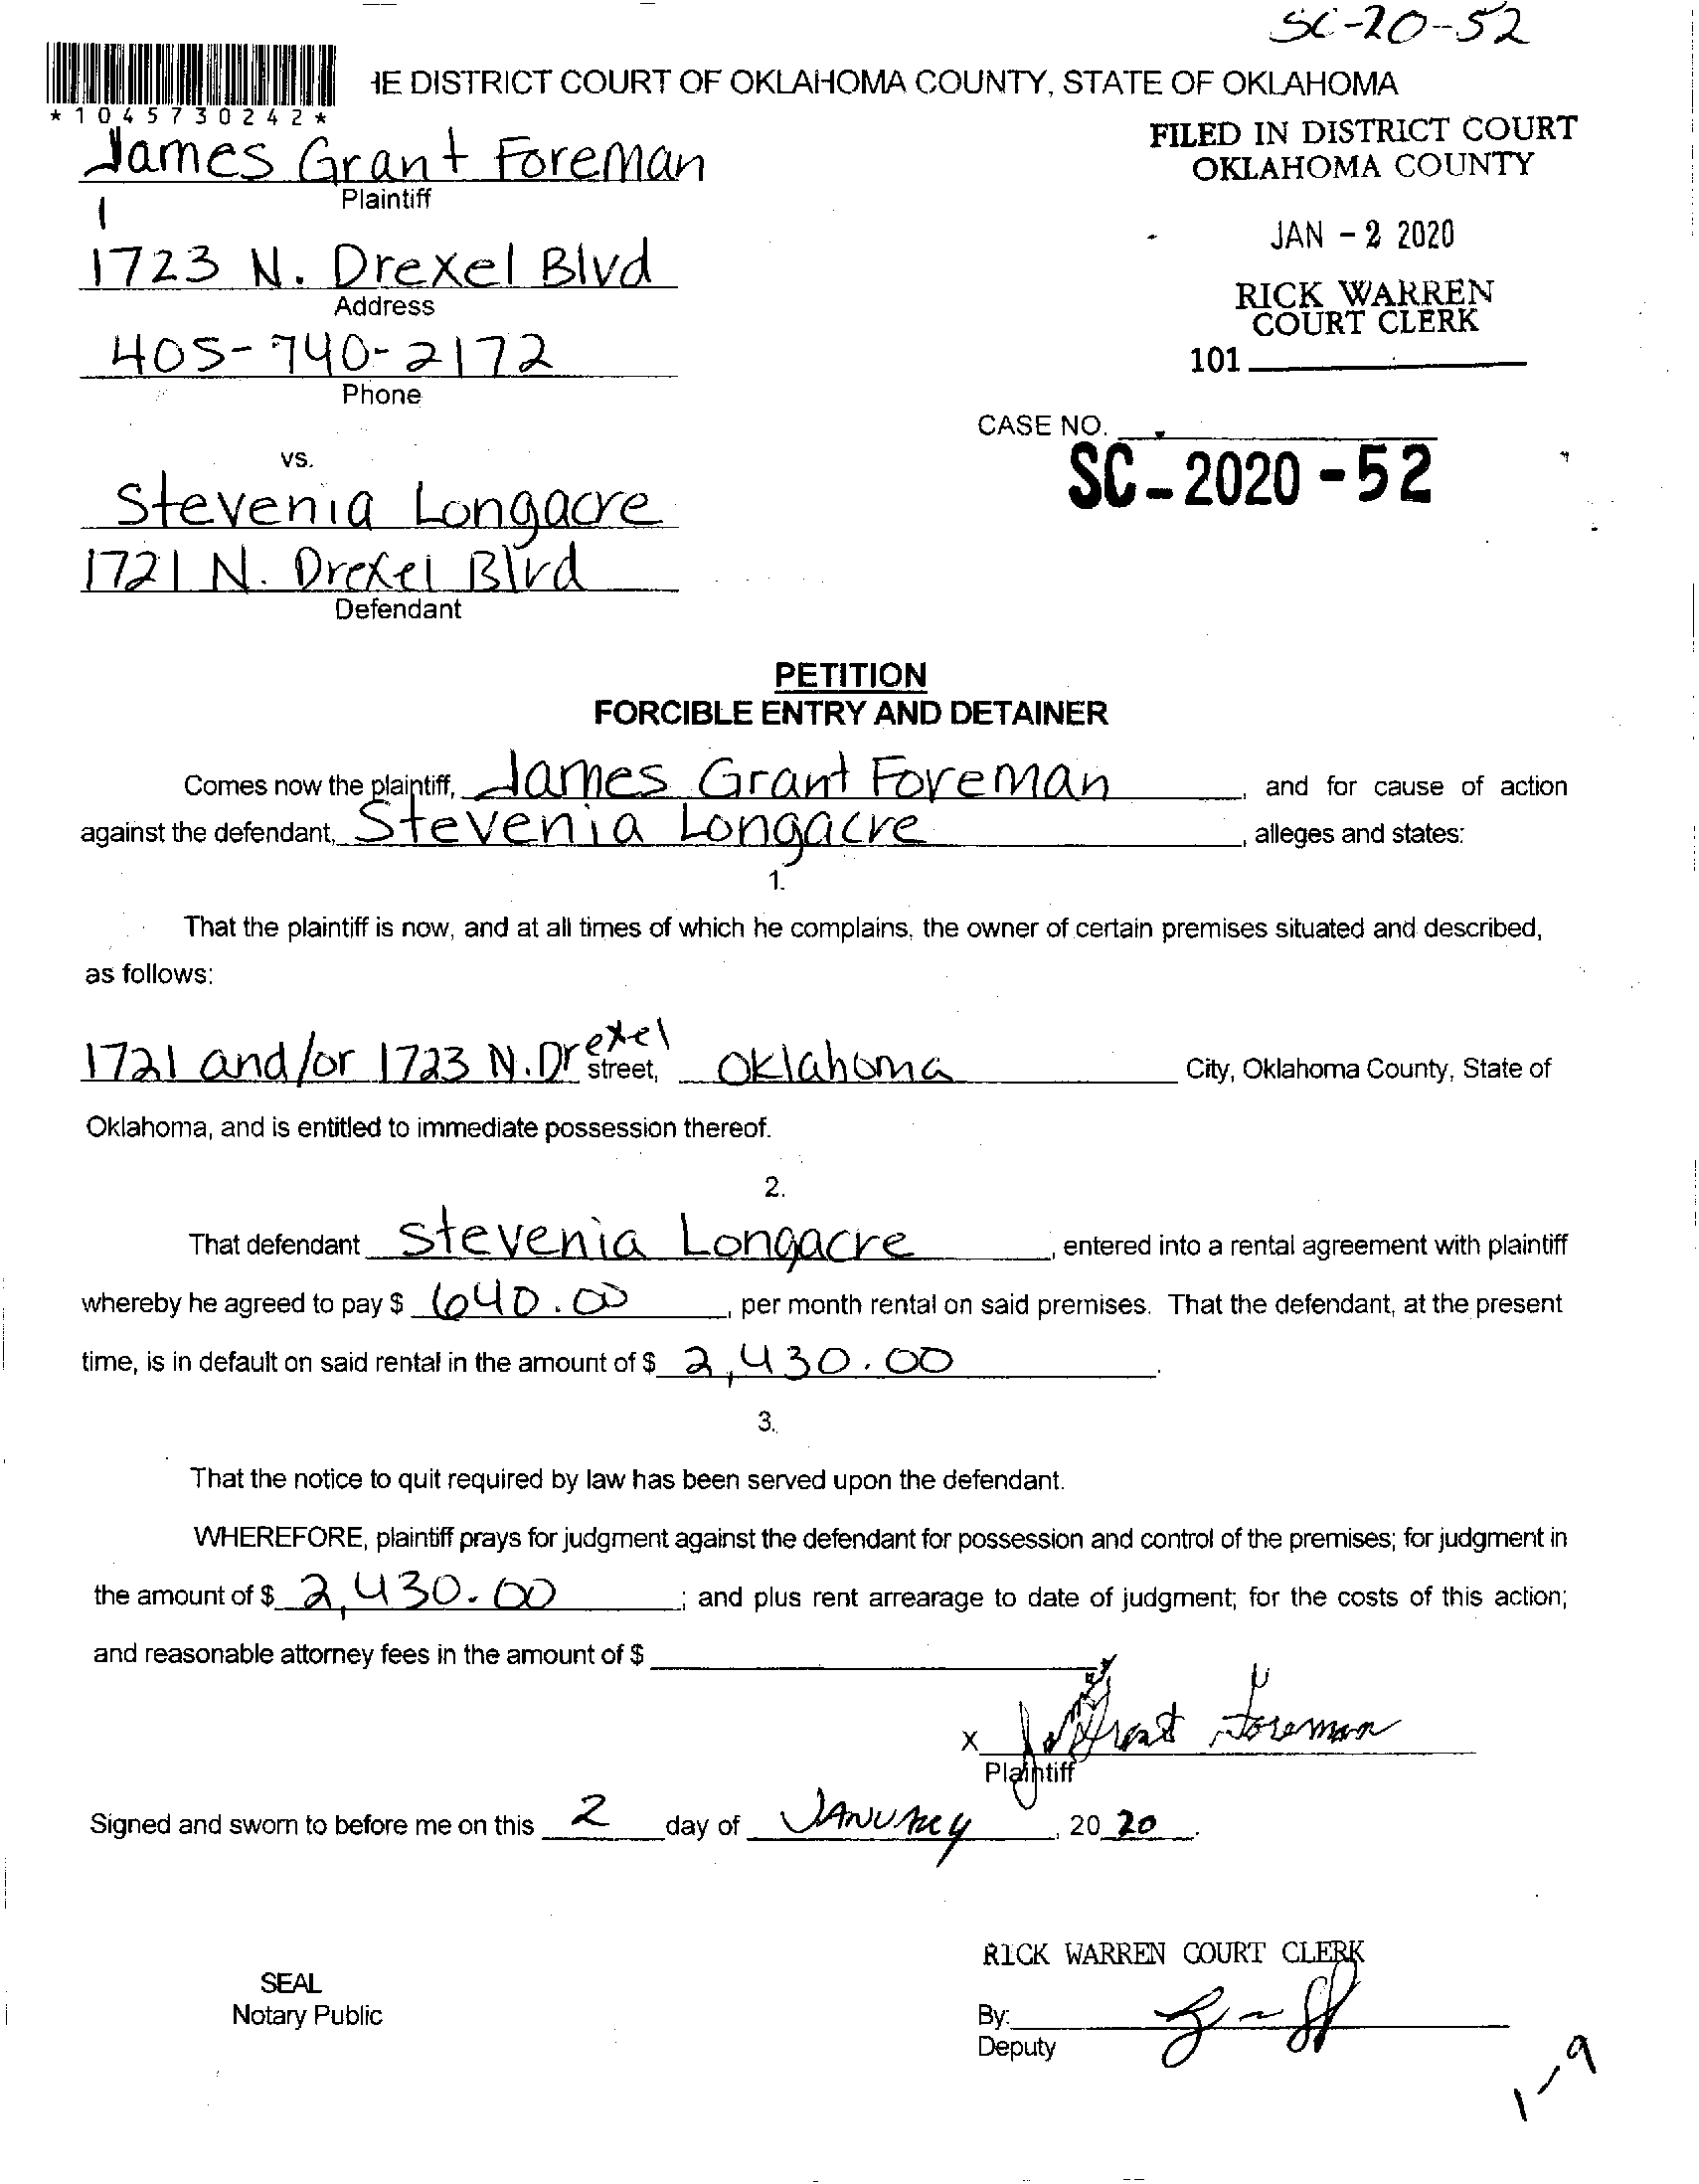 SC-20-52
HE DISTRICT COURT OF OKLAHOMA COUNTY, STATE OF OKLAHOMA
*1045730242*
FILED IN DISTRICT COURT
OKLAHOMA COUNTY
James Grant Foreman
Plaintiff
JAN - 2 2020
1723 N. Drexel Blvd
Address
RICK WARREN
COURT CLERK
405-740-2172
Phone
101
CASE NO.
SC-2020-52
vs.
Stevenia Longacre
1721 N. Drexel Blvd
Defendant
PETITION
FORCIBLE ENTRY AND DETAINER
Comes now the plaintiff, James Grant Foreman, and for cause of action
against the defendant, Stevenia Longacre, alleges and states:
1.
That the plaintiff is now, and at all times of which he complains, the owner of certain premises situated and described,
as follows:
1721 and/or 1723 N. Drexel street, Oklahoma City, Oklahoma County, State of
Oklahoma, and is entitled to immediate possession thereof.
2.
That defendant Stevenia Longacre, entered into a rental agreement with plaintiff
whereby he agreed to pay $ 640.00, per month rental on said premises. That the defendant, at the present
time, is in default on said rental in the amount of $ 2,430.00.
3.
That the notice to quit required by law has been served upon the defendant.
WHEREFORE, plaintiff prays for judgment against the defendant for possession and control of the premises; for judgment in
the amount of $ 2,430.00; and plus rent arrearage to date of judgment; for the costs of this action;
and reasonable attorney fees in the amount of $
x Grant Foreman
Plaintiff
Signed and sworn to before me on this 2 day of January, 20 20.
RICK WARREN COURT CLERK
SEAL
Notary Public
By:
Deputy
1-9